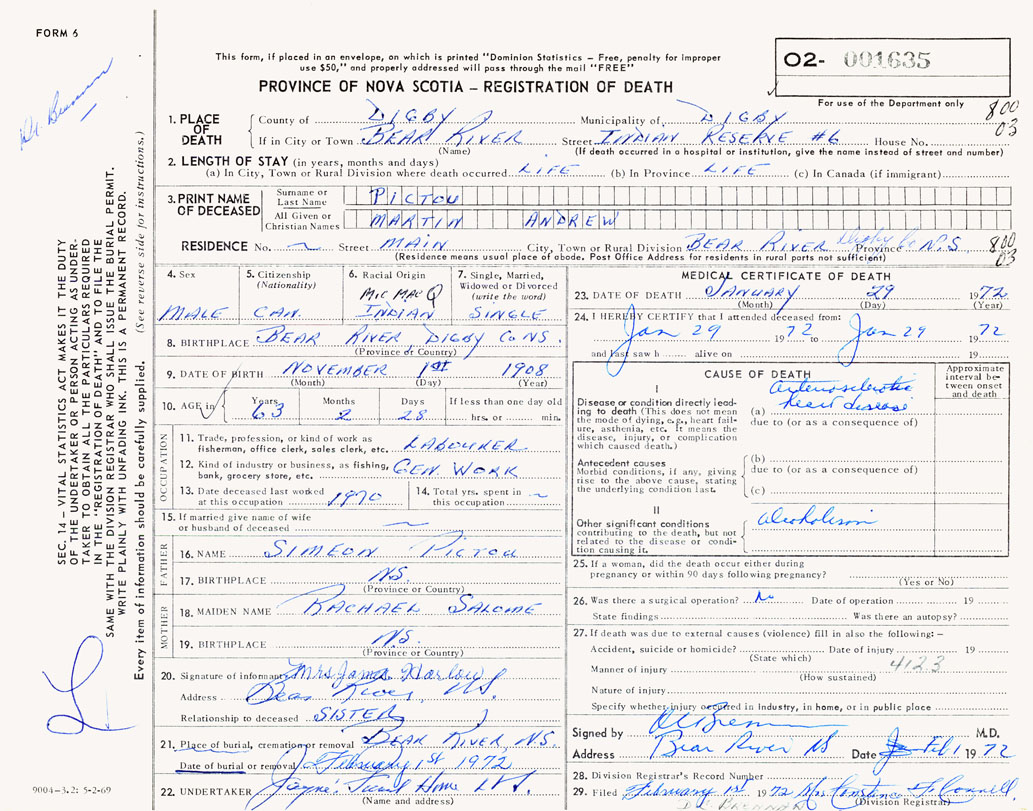 FORM 6
This form, if placed in an envelope, on which is printed "Dominion Statistics – Free, penalty for improper
use $50," and properly addressed will pass through the mail "FREE"
PROVINCE OF NOVA SCOTIA – REGISTRATION OF DEATH
O2- 001635
For use of the Department only
800
03
1. PLACE OF DEATH
County of DIGBY Municipality of DIGBY
If in City or Town BEAR RIVER Street INDIAN RESERVE #6 House No.
(Name) (If death occurred in a hospital or institution, give the name instead of street and number)
2. LENGTH OF STAY (in years, months and days)
(a) In City, Town or Rural Division where death occurred LIFE (b) In Province LIFE (c) In Canada (if immigrant)
3. PRINT NAME OF DECEASED
Surname or Last Name PICTOU
All Given or Christian Names MARTIN ANDREW
RESIDENCE No. ~ Street MAIN City, Town or Rural Division BEAR RIVER Digby Co Province N.S 800
(Residence means usual place of abode. Post Office Address for residents in rural parts not sufficient) 03
4. Sex MALE
5. Citizenship (Nationality) CAN.
6. Racial Origin MIC MAC INDIAN
7. Single, Married, Widowed or Divorced (write the word) SINGLE
8. BIRTHPLACE BEAR RIVER, DIGBY Co NS.
(Province or Country)
9. DATE OF BIRTH NOVEMBER 1st 1908
(Month) (Day) (Year)
10. AGE in Years Months Days If less than one day old
63 2 28 hrs. or min.
OCCUPATION
11. Trade, profession, or kind of work as
fisherman, office clerk, sales clerk, etc. LABOURER.
12. Kind of industry or business, as fishing,
bank, grocery store, etc. GEN. WORK
13. Date deceased last worked
at this occupation 1970
14. Total yrs. spent in
this occupation ~
15. If married give name of wife
or husband of deceased ~
FATHER
16. NAME SIMEON PICTOU
17. BIRTHPLACE NS.
(Province or Country)
MOTHER
18. MAIDEN NAME RACHAEL SALOME
19. BIRTHPLACE NS.
(Province or Country)
20. Signature of informant Mrs James Harlow
Address Bear River, NS.
Relationship to deceased SISTER
21. Place of burial, cremation or removal BEAR RIVER, NS.
Date of burial or removal February 1st 1972
22. UNDERTAKER Jayne's Funeral Home Ltd.
(Name and address)
MEDICAL CERTIFICATE OF DEATH
23. DATE OF DEATH JANUARY 29 1972
(Month) (Day) (Year)
24. I HEREBY CERTIFY that I attended deceased from:
Jan 29 1972 to Jan 29 1972
and last saw h alive on 19
CAUSE OF DEATH
Approximate interval between onset and death
I
Disease or condition directly leading to death (This does not mean the mode of dying, e.g., heart failure, asthenia, etc. It means the disease, injury, or complication which caused death.)
(a) arteriosclerotic heart disease
due to (or as a consequence of)
Antecedent causes
Morbid conditions, if any, giving rise to the above cause, stating the underlying condition last.
(b)
due to (or as a consequence of)
(c)
II
Other significant conditions contributing to the death, but not related to the disease or condition causing it.
alcoholism
25. If a woman, did the death occur either during
pregnancy or within 90 days following pregnancy?
(Yes or No)
26. Was there a surgical operation? No Date of operation 19
State findings Was there an autopsy?
27. If death was due to external causes (violence) fill in also the following: –
Accident, suicide or homicide? Date of injury 19
(State which)
4123
Manner of injury
(How sustained)
Nature of injury
Specify whether injury occurred in Industry, in home, or in public place
Signed by M.D.
Address Bear River NS Date Feb 1 1972
28. Division Registrar's Record Number
29. Filed February 1st 1972 Mrs Constance F. Connell
(Division Registrar)
DR BRENNAN
Dr. Brennan
SEC. 14 – VITAL STATISTICS ACT MAKES IT THE DUTY
OF THE UNDERTAKER OR PERSON ACTING AS UNDER-
TAKER TO OBTAIN ALL THE PARTICULARS REQUIRED
IN THE "REGISTRATION OF DEATH" AND TO FILE THE
SAME WITH THE DIVISION REGISTRAR WHO SHALL ISSUE THE BURIAL PERMIT.
WRITE PLAINLY WITH UNFADING INK. THIS IS A PERMANENT RECORD.
Every item of information should be carefully supplied. (See reverse side for instructions.)
9004-3.2: 5-2-69